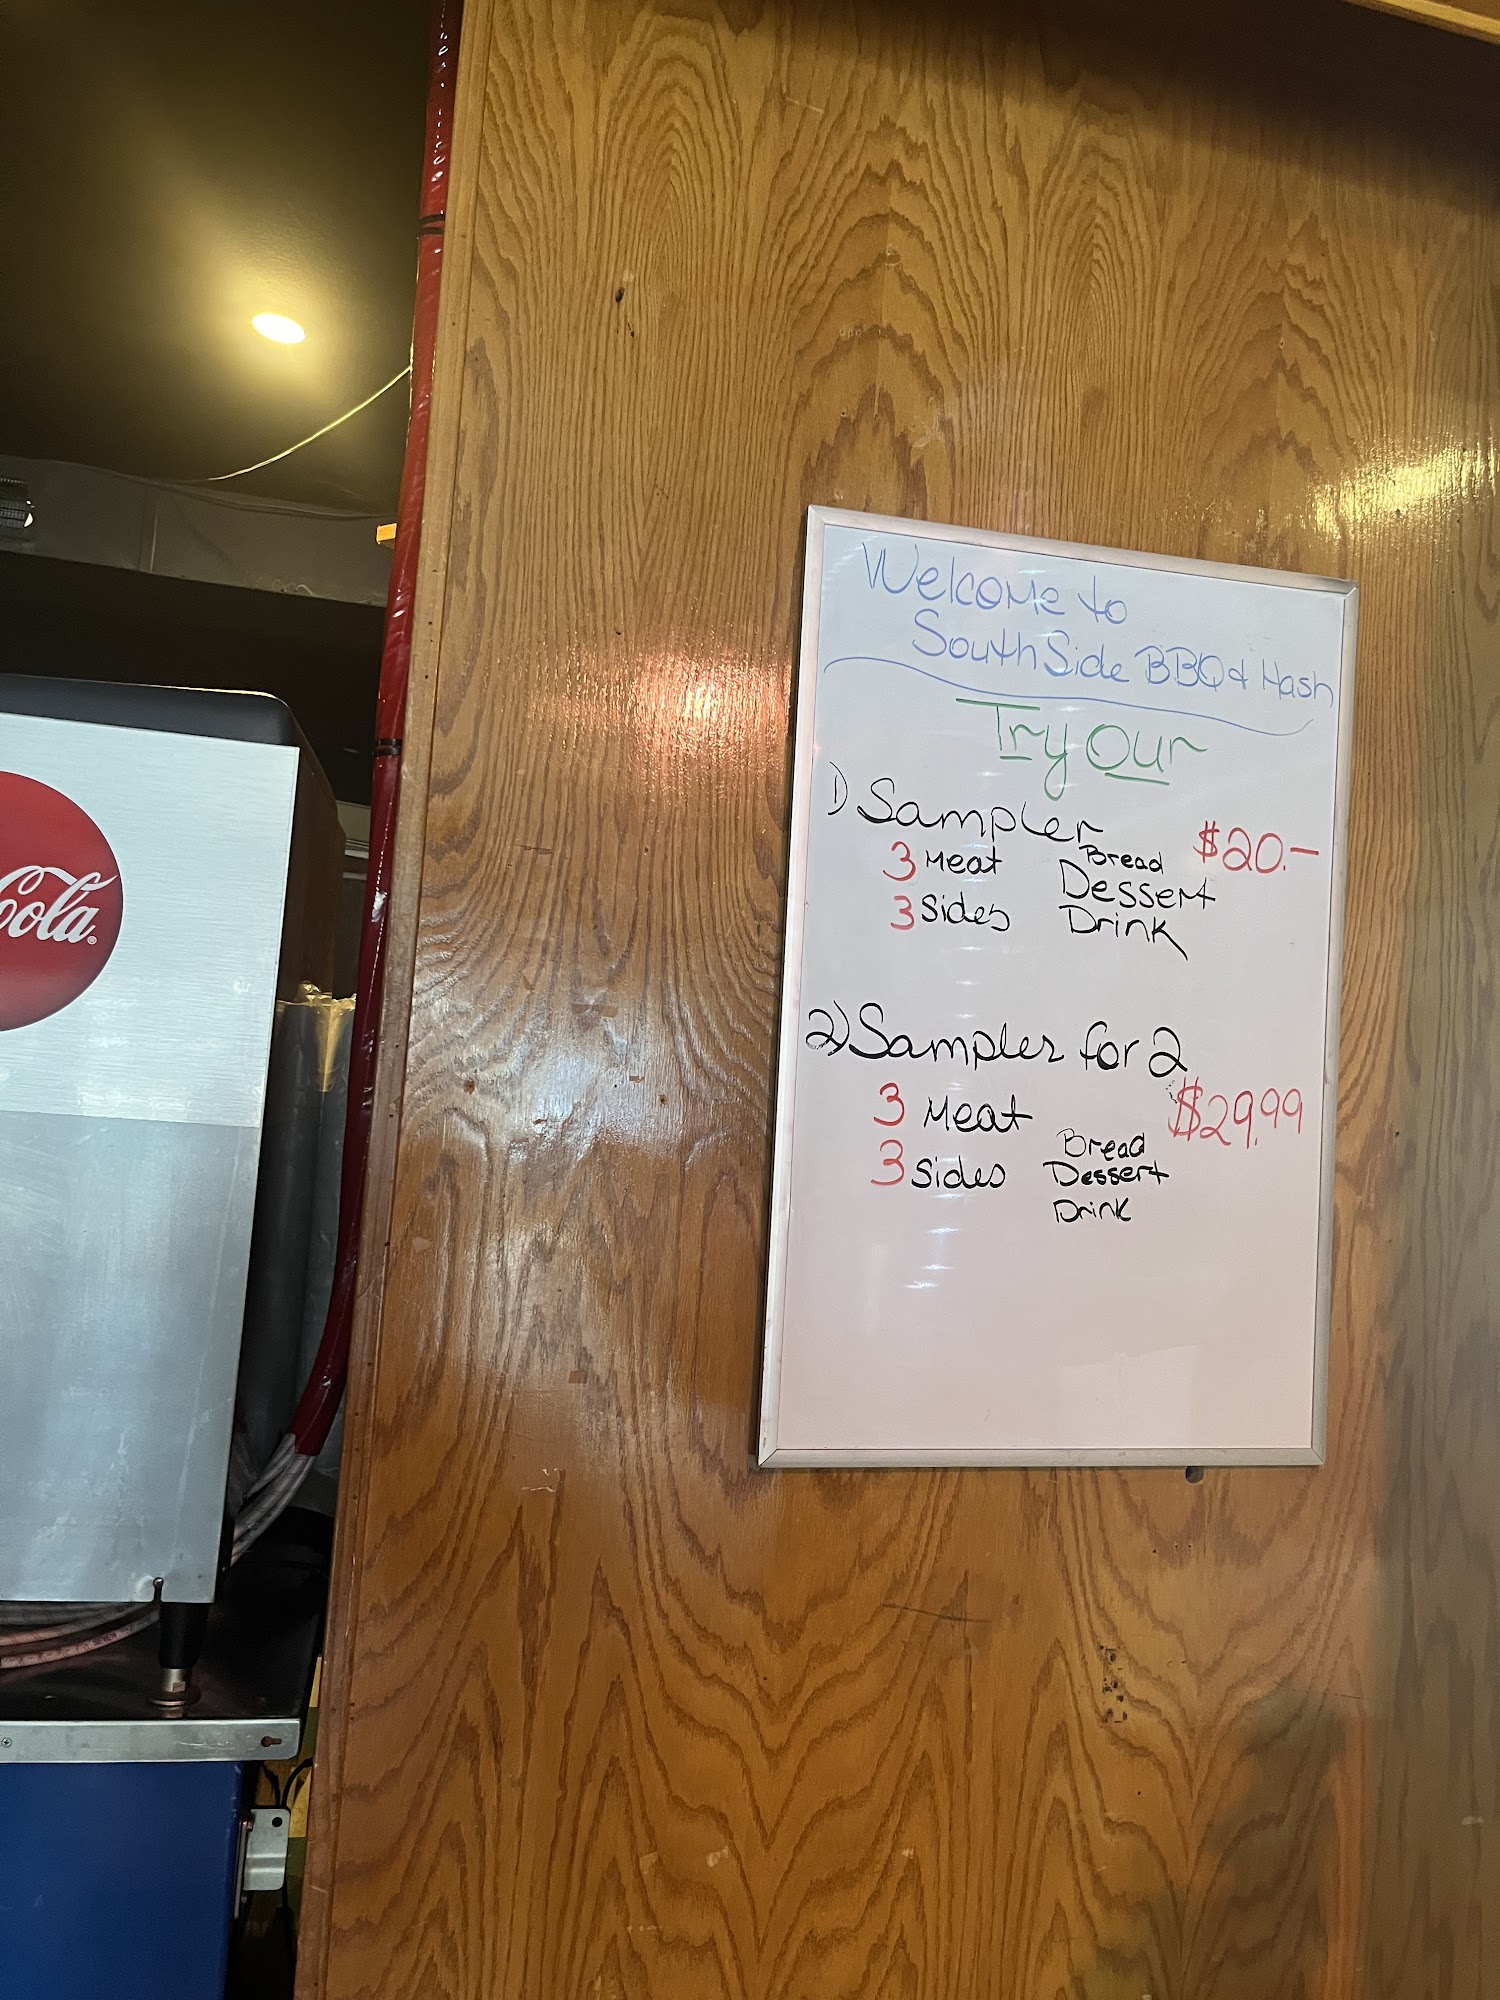 Cola
Welcome to
SouthSide BBQ & Hash
Try Our
1) Sampler
$20.-
3 Meat Bread
Dessert
3 Sides Drink
2) Sampler for 2
3 Meat $29.99
Bread
3 Sides Dessert
Drink